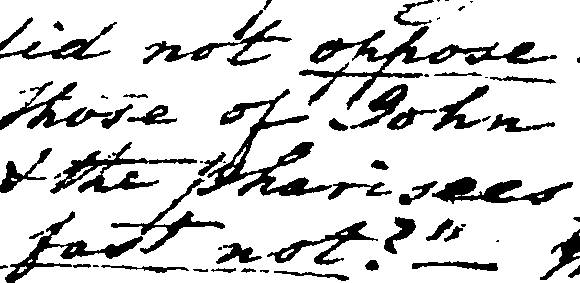 did not oppose
those of John
& the Pharisees
fast not?"